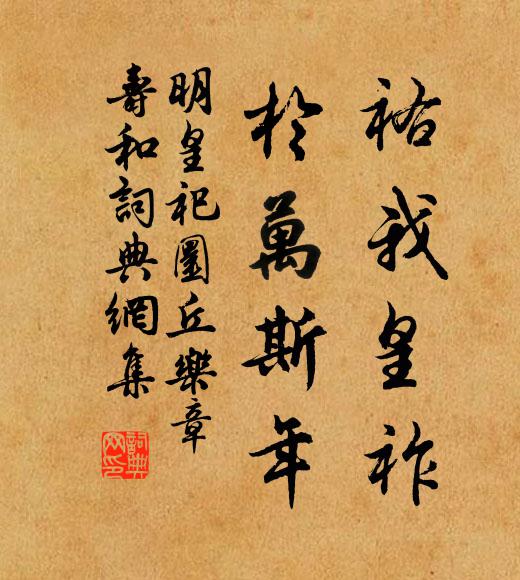 祐我皇祚
於萬斯年
明皇祀圜丘樂章
壽和詞典網集
詞典網印